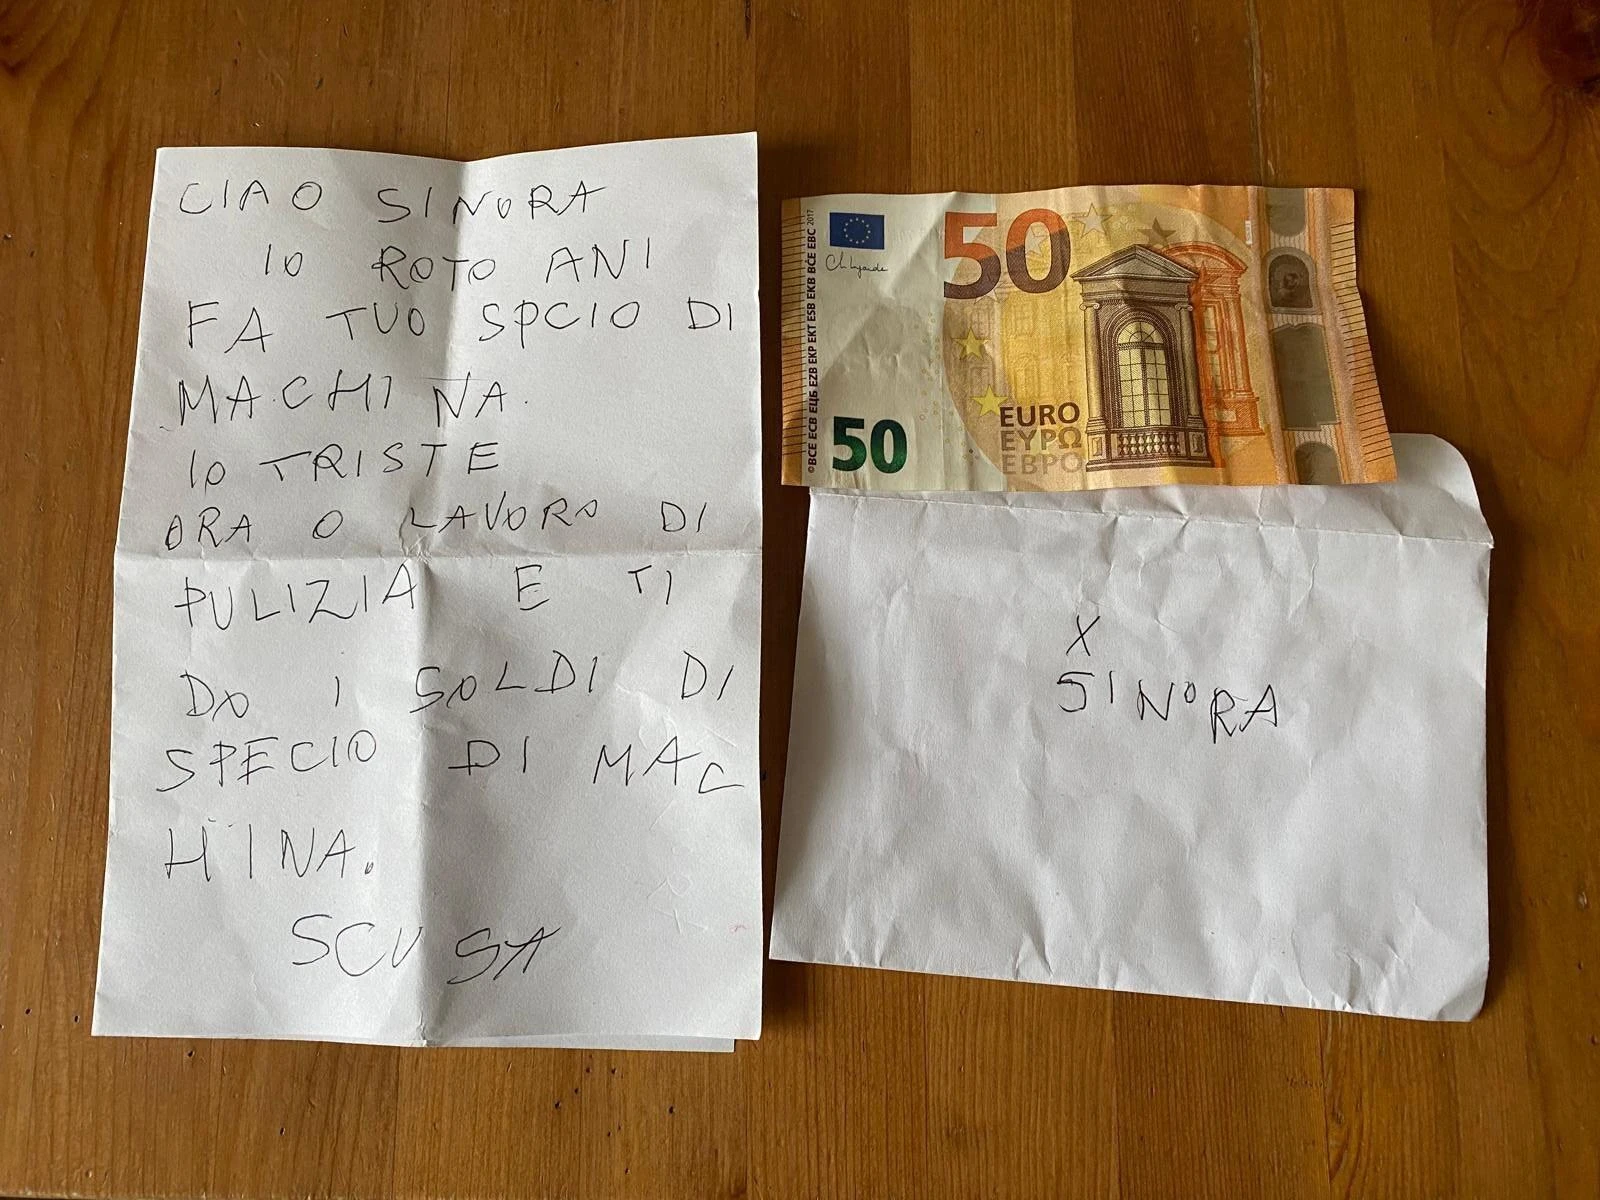 CIAO SINORA
IO ROTO ANI
FA TUO SPCIO DI
MACHINA.
IO TRISTE
ORA O LAVORO DI
PULIZIA E TI
DO I SOLDI DI
SPECIO DI MAC
HINA.
SCUSA
50
EURO
ΕΥΡΩ
ЕВРО
50
©BCE ECB ЕЦБ EZB EKP EKT ESB EKB BĊE EBC 2017
X
SINORA